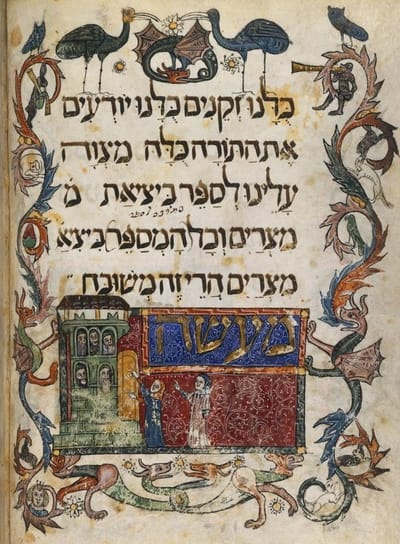 כלנו זקנים כלנו יודעים
את התורה כלה מצוה
עלינו לספר ביציאת מ
מצרים וכל המספר ביציא
מצרים הרי זה משובח
מעשה